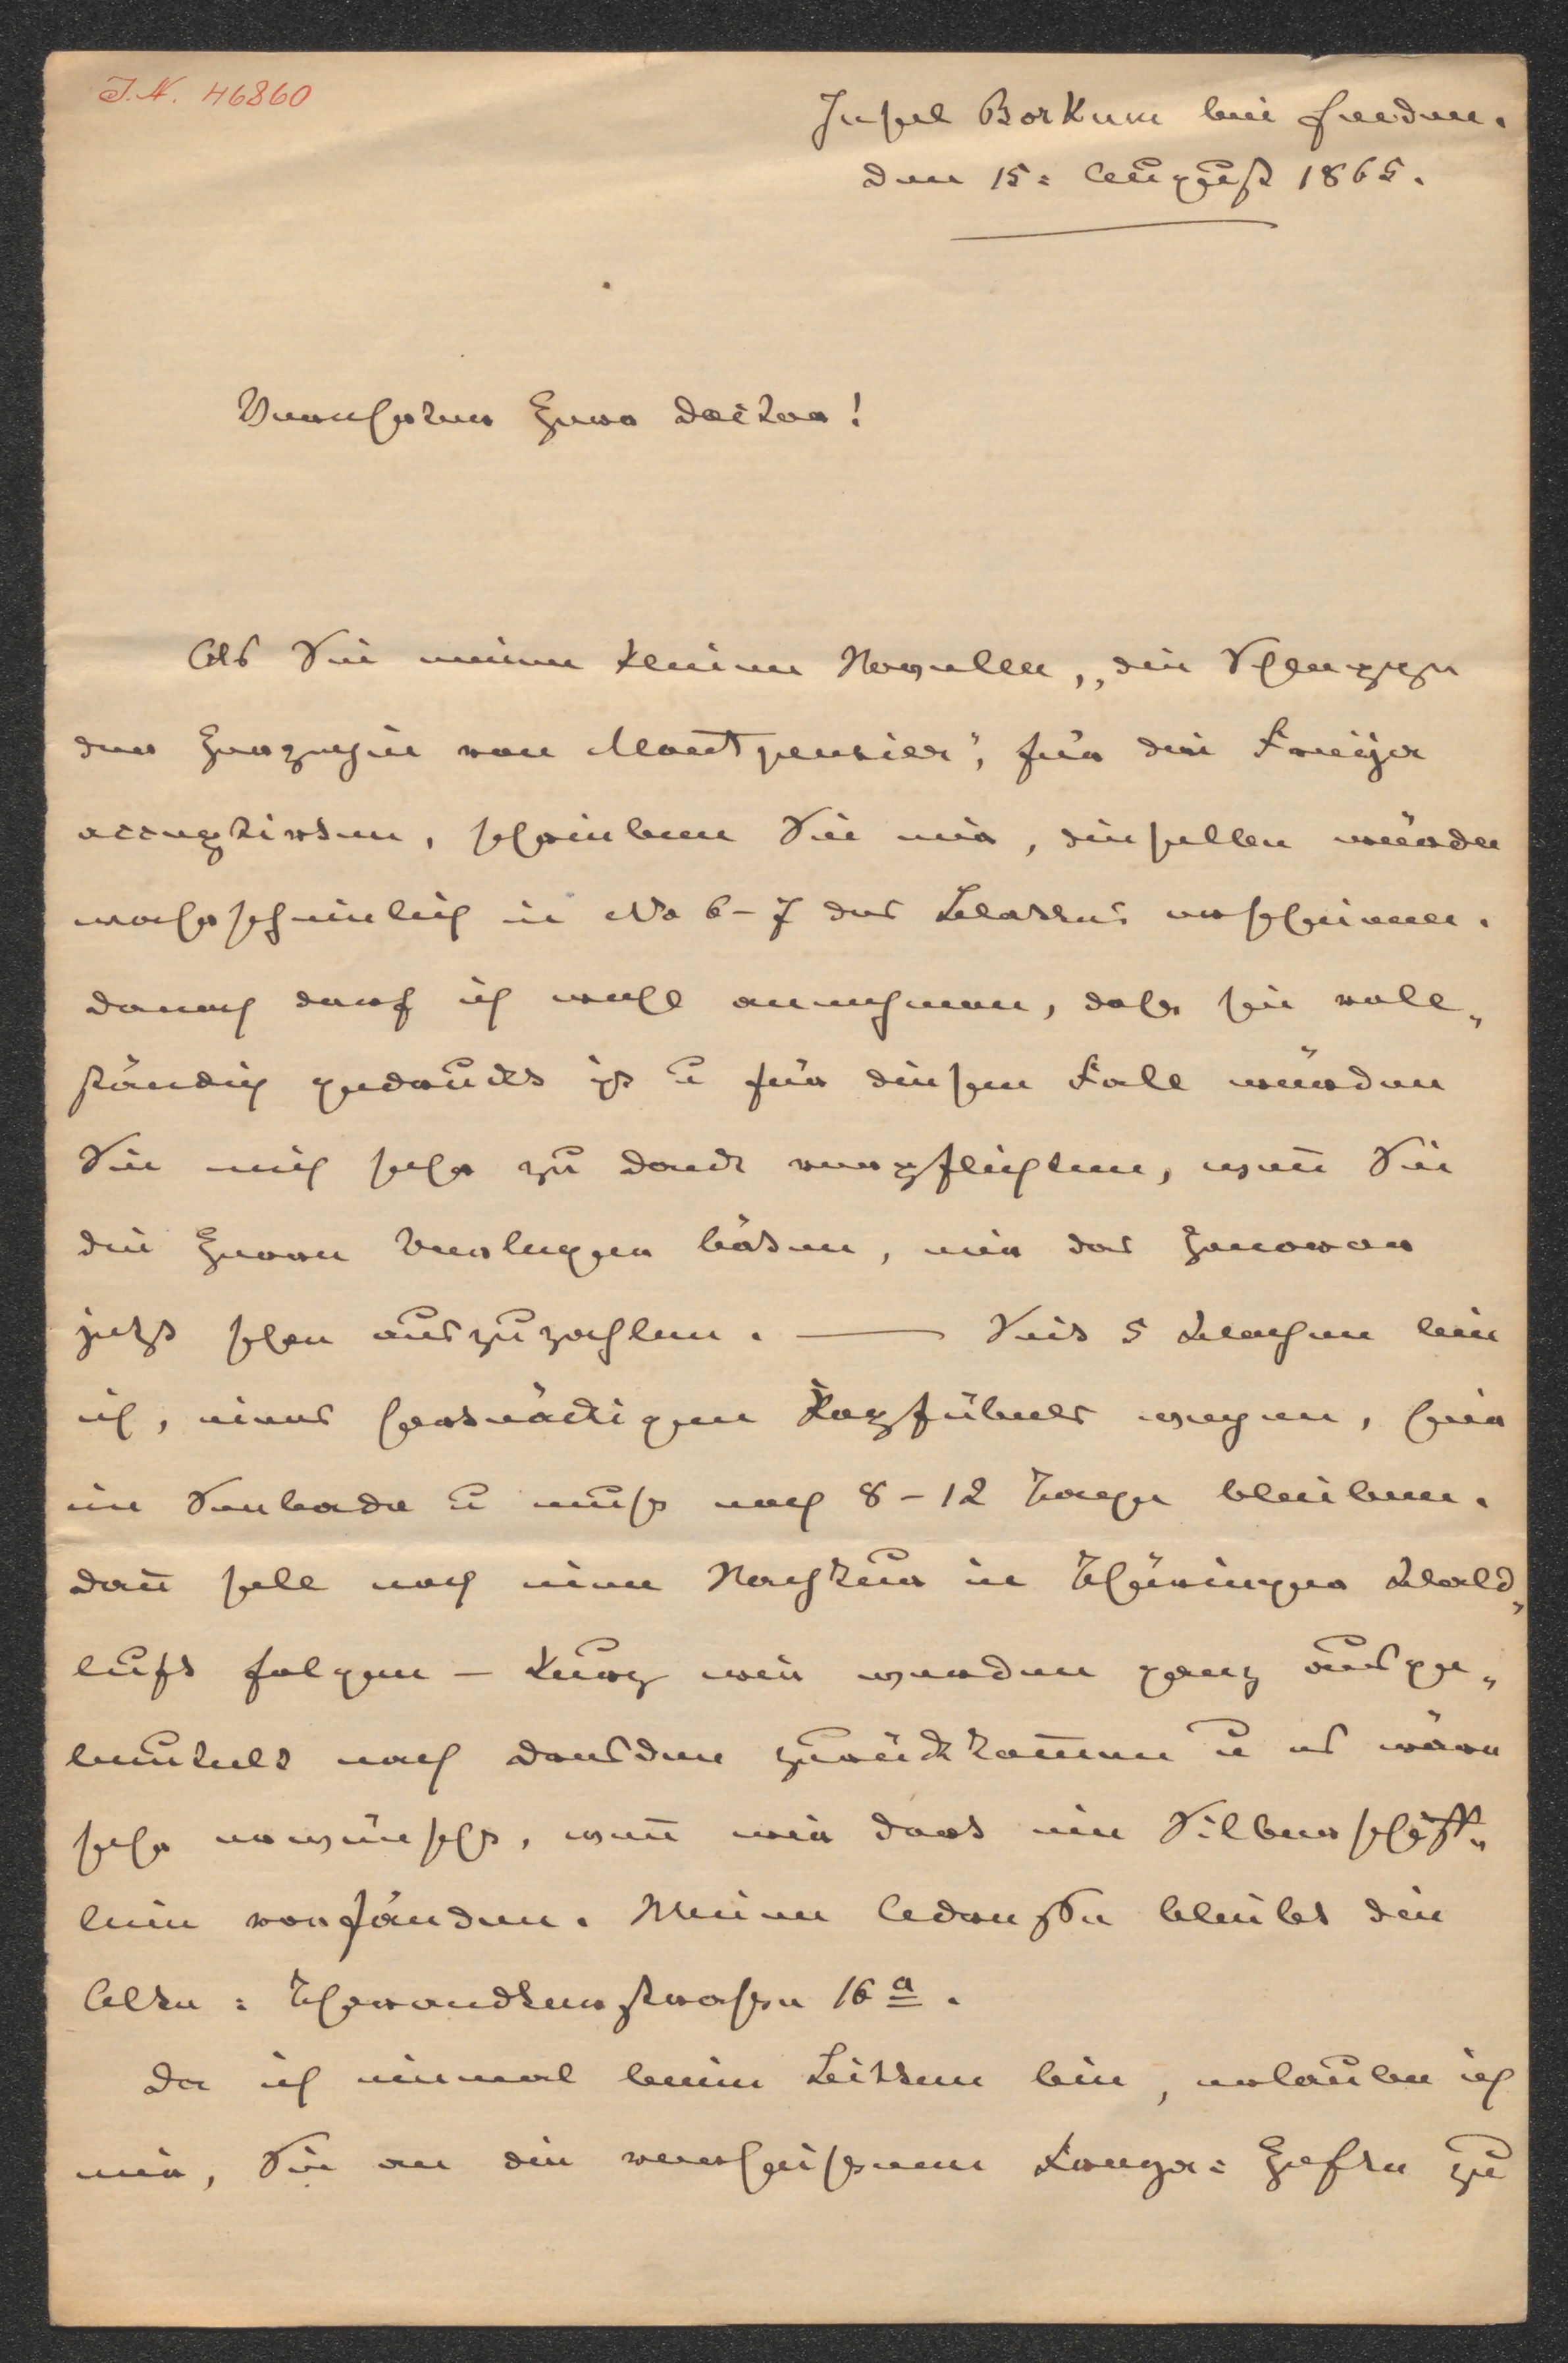 J.N. 46860
Insel Borkum bei Emden.
den 15: August 1865.
Verehrter Herr Doctor!
Als Sie meine kleine Novelle, „die Schleppe
der Herzogin von Montpensier", für die Freija
acceptirten, schrieben Sie mir, dieselbe würde
wahrscheinlich in No 6-7 des Blattes erscheinen.
Danach darf ich wohl annehmen, daß sie voll„
ständig gedruckt ist u für diesen Fall würden
Sie mich sehr zu Dank verpflichten, wenn Sie
die Herren Verleger bäten, mir das Honorar
jetzt schon auszuzahlen. — Seit 5 Wochen bin
ich, eines hartnäckigen Kopfübels wegen, hier
im Seebade u muß noch 8-12 Tage bleiben.
Dann soll noch eine Nachkur in Thüringer Wald„
luft folgen – kurz wir werden ganz ausge„
beutelt nach Dresden zurückkommen u es wäre
sehr erwünscht, wenn wir dort ein Silberschiff„
lein vorfänden. Meine Adresse bleibt die
Alte: Therandterstraße 16 a.
Da ich einmal beim Bitten bin, erlaube ich
mir, Sie an die verheißenen Freya: Hefte zu